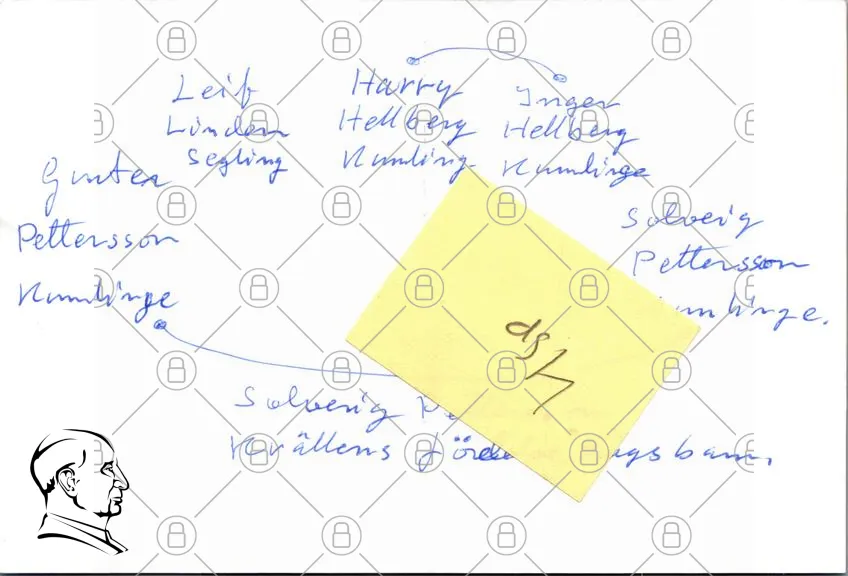 Leif
Linden
Segling
Harry
Hellberg
Kumling
Inger
Hellberg
Kumlinge
Gunter
Pettersson
Kumlinge
Solveig
Pettersson
umlinge.
Solveig
Kvällens